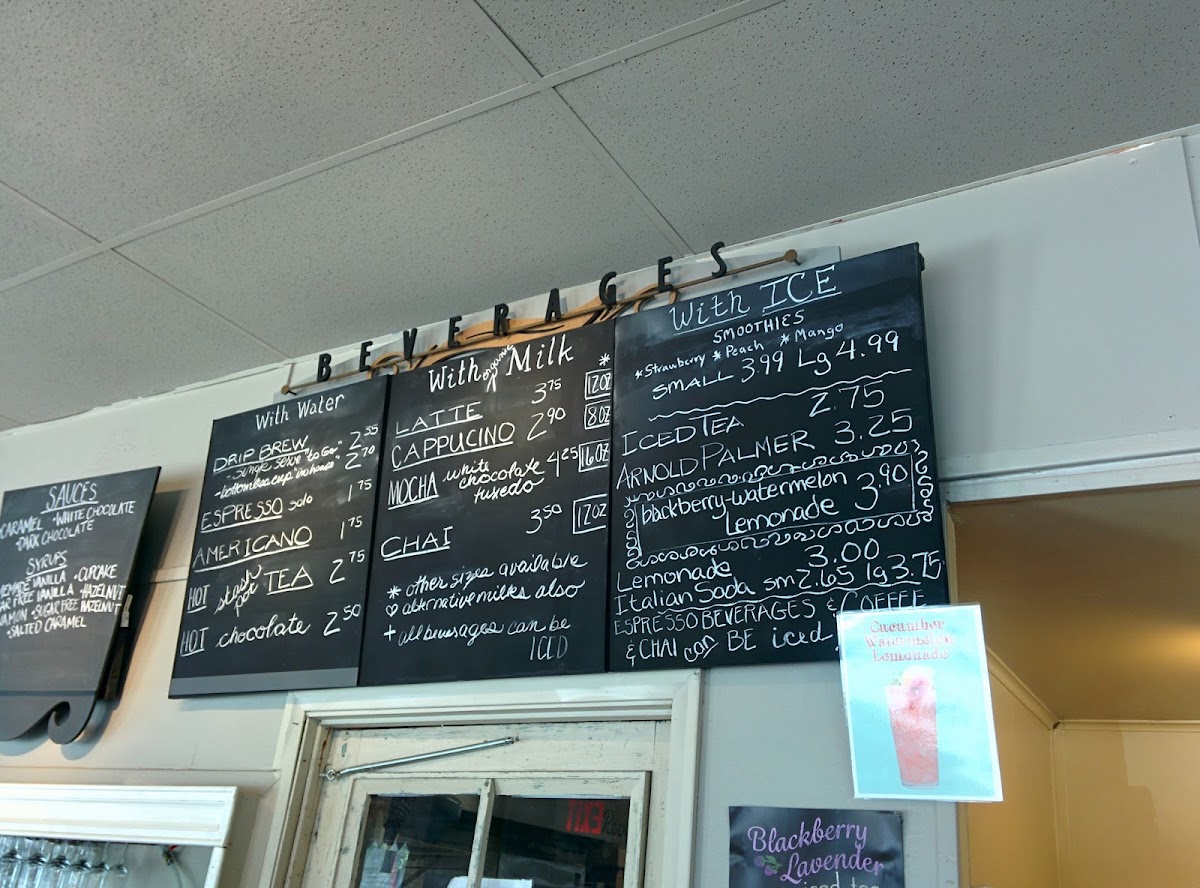 BEVERAGES
SAUCES
CARAMEL • WHITE CHOCOLATE
• DARK CHOCOLATE
SYRUPS
VANILLA • CUPCAKE
FREE VANILLA • HAZELNUT
• SUGAR FREE HAZELNUT
• SALTED CARAMEL
With Water
DRIP BREW
- single serve "to Go" 2.35
- bottomless cup "in house" 2.70
ESPRESSO solo 1.75
AMERICANO 1.75
HOT stash pot TEA 2.75
HOT chocolate 2.50
With organic Milk
*
LATTE 3.75 12OZ
CAPPUCINO 2.90 8OZ
MOCHA white chocolate tuxedo 4.25 16OZ
CHAI 3.50 12OZ
* other sizes available
♡ alternative milks also
+ all beverages can be
ICED
With ICE
SMOOTHIES
* Strawberry * Peach * Mango
SMALL 3.99 Lg 4.99
ICED TEA 2.75
ARNOLD PALMER 3.25
blackberry-watermelon
Lemonade 3.90
Lemonade 3.00
Italian Soda sm 2.65 lg 3.75
ESPRESSO BEVERAGES & COFFEE
& CHAI can BE iced
Cucumber
Watermelon
Lemonade
EXIT
Blackberry
Lavender
iced tea